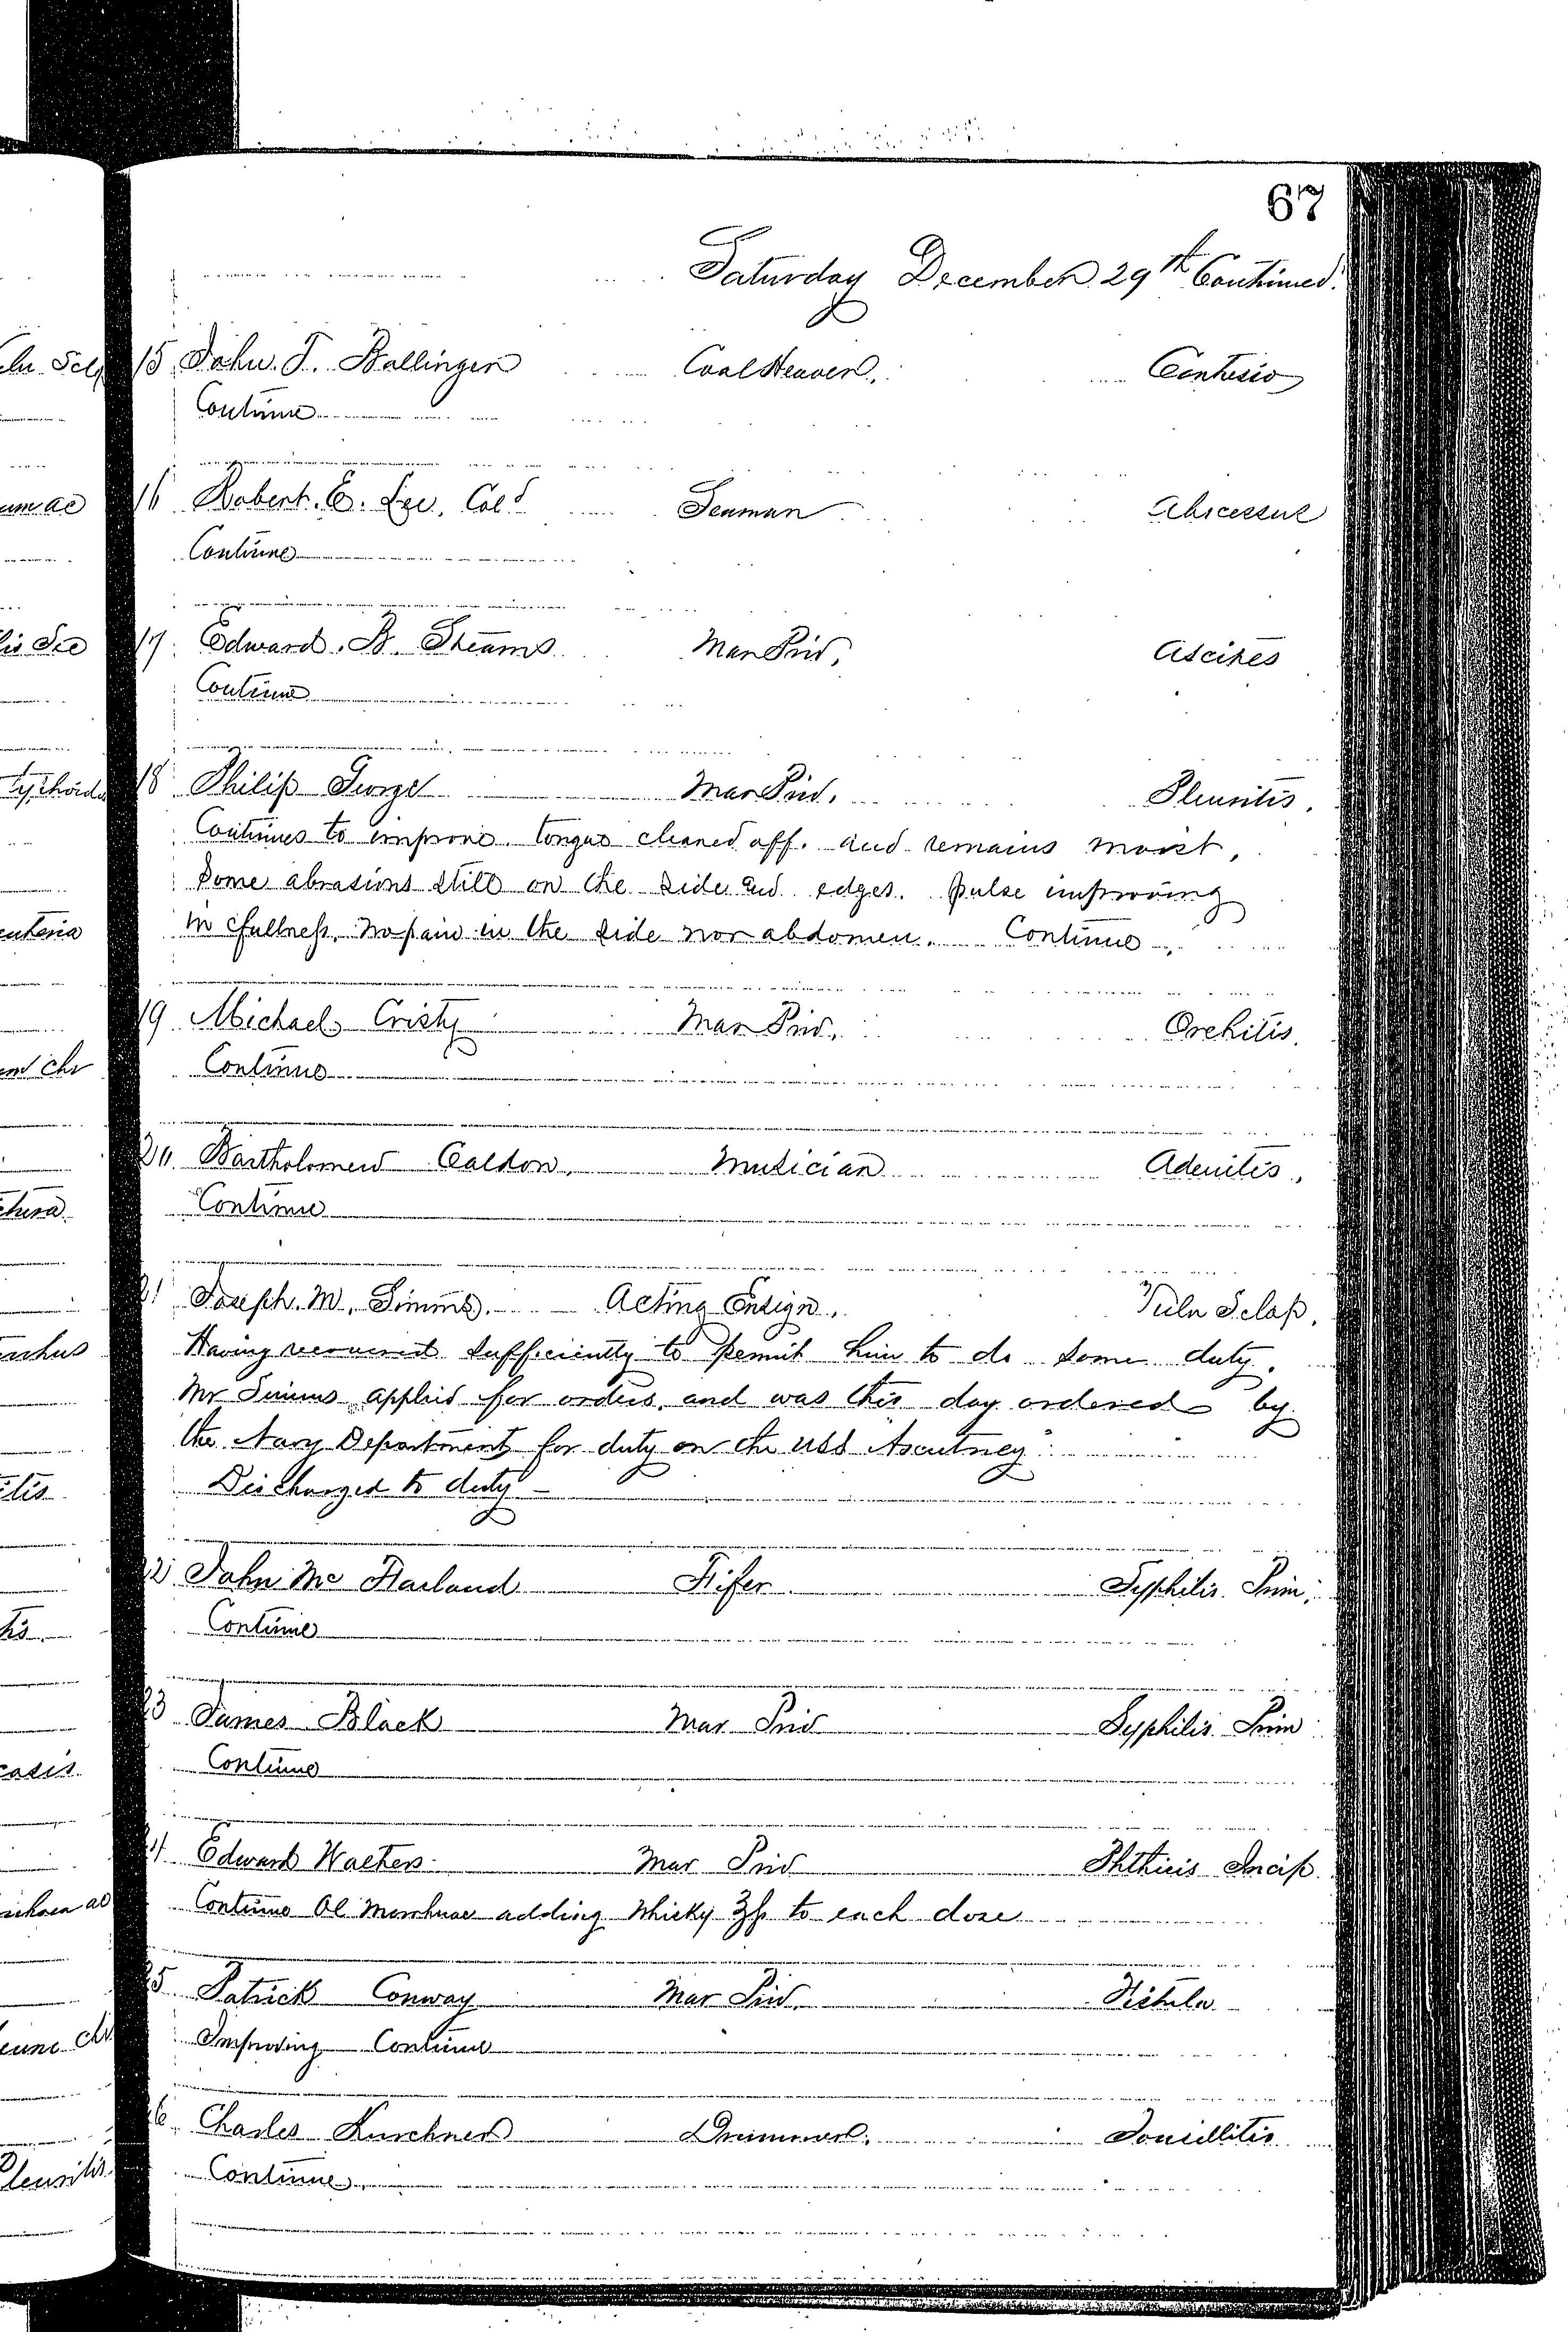 67
Saturday December 29th Continued.
15 John. T. Ballinger Coal Heaver. Contusio
Continue
16 Robert. E. Lee. Cold Seaman Abscessus
Continue
17. Edward. B. Stearns Mar Priv. Ascites
Continue
18 Philip George Mar Priv. Pleuritis.
Continues to improve. tongue cleaned off. and remains moist.
Some abrasions still on the side and edges. pulse improving
in fullness. No pain in the side nor abdomen. Continue.
19 Michael Cristy Mar Priv. Orchitis.
Continue
20 Bartholomew Caldon. Musician Adenitis.
Continue
21 Joseph. M. Simms. Acting Ensign. Vuln Sclop.
Having recovered sufficiently to permit him to do some duty.
Mr Simms applied for orders. and was this day ordered by
the Navy Department for duty on the USS Ascutney"
Discharged to duty -
22 John Mc Farland Fifer Syphilis. Prim.
Continue
23 James Black Mar Priv Syphilis. Prim
Continue
24 Edward Walters Mar Priv Phthisis Incip.
Continue Ol Morrhuae adding Whisky ℥ß to each dose
25 Patrick Conway Mar Priv. Fistula
Improving Continue
26 Charles Kurchner Drummer. Tonsillitis
Continue.